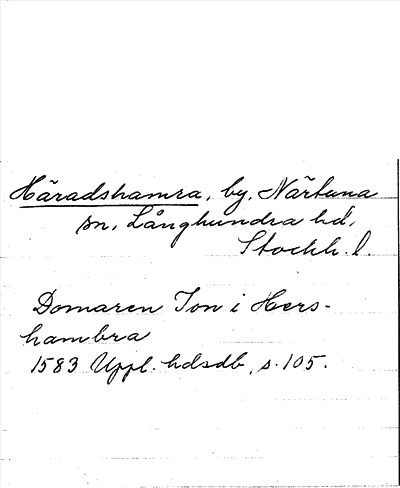 Häradshamra, by, Närtuna
sn, Långhundra hd,
Stockh. l.
Domaren Jon i Hers-
hambra
1583 Uppl. hdsdb, s. 105.